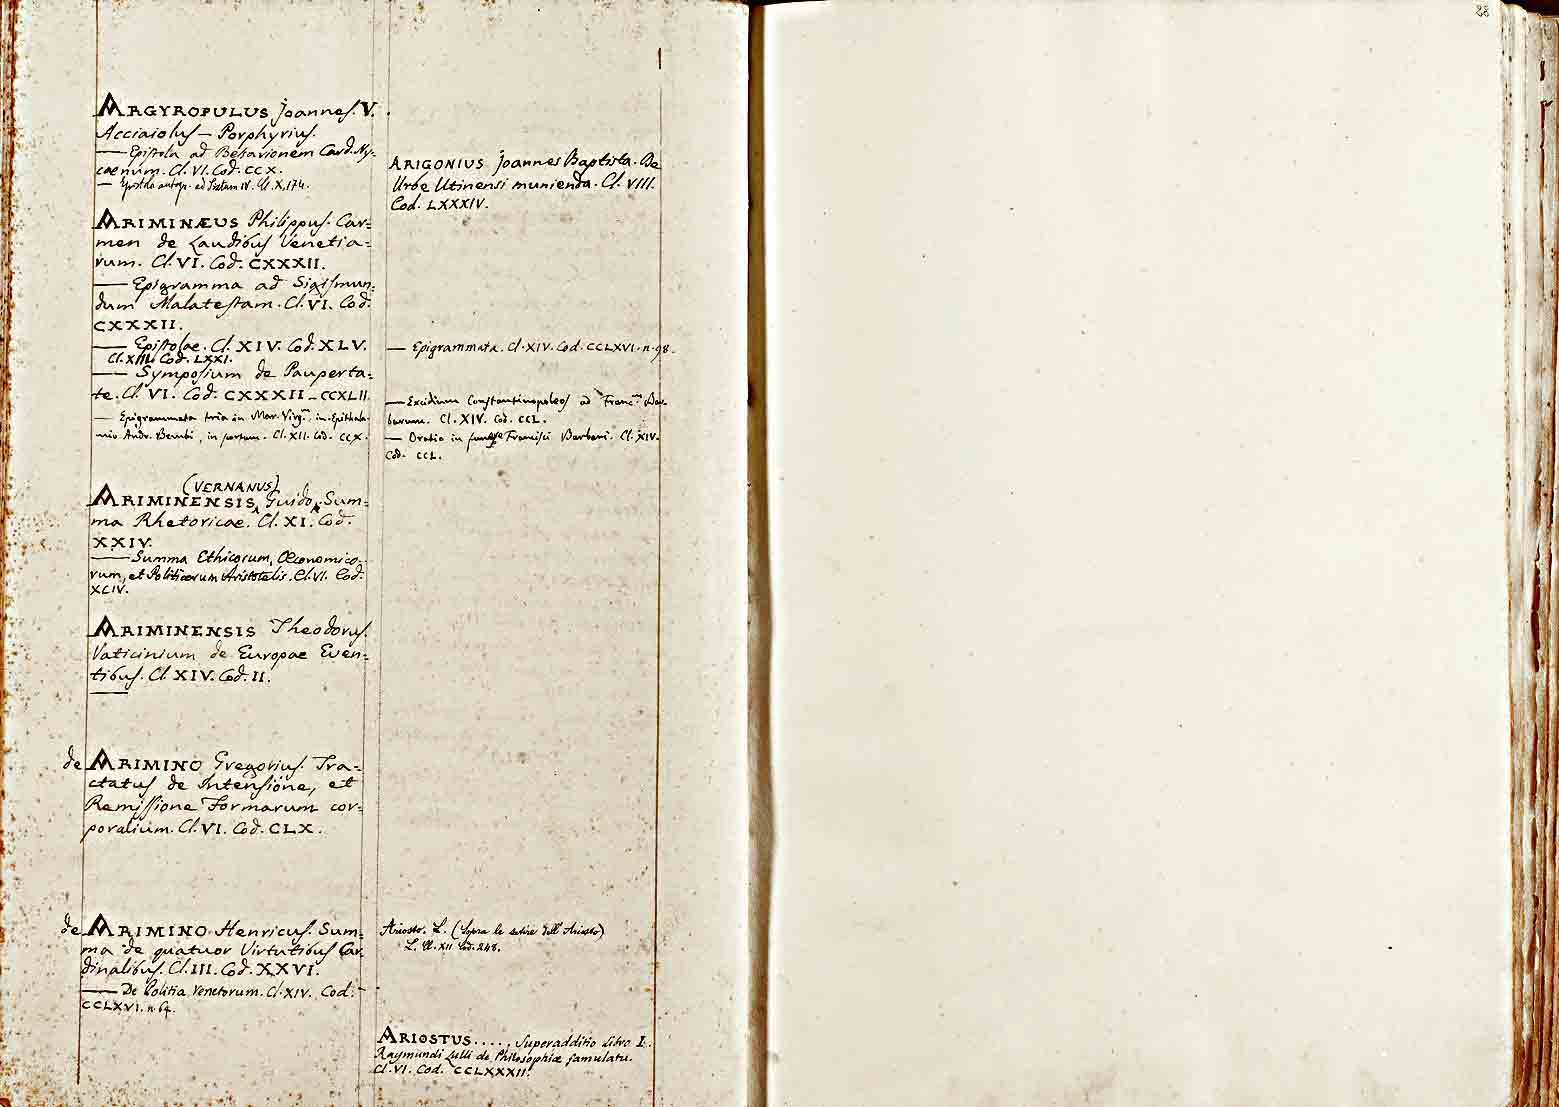 ARGYROPULUS Joannes. V.
Acciaiolus — Porphyrius.
— Epistola ad Besarionem Card. Ny-
caenum. Cl. VI. Cod. CCX.
— Epistola autogr. ad Sixtum IV. Cl. X, 174.
ARIMINÆUS Philippus. Car=
men de Laudibus Venetia=
rum. Cl. VI. Cod. CXXXII.
— Epigramma ad Sigismun=
dum Malatestam. Cl. VI. Cod.
CXXXII.
— Epistolae. Cl. XIV. Cod. XLV.
Cl. XIII. Cod. LXXI.
— Symposium de Pauperta=
te. Cl. VI. Cod. CXXXII _ CCXLII
— Epigrammata tria in Mar. Virgm. in Epithala-
mio Andr. Bembi, in partum. Cl. XII. Cod. CCX.
(VERNANUS)
ARIMINENSIS Guido. Sum=
ma Rhetoricae. Cl. XI. Cod.
XXIV.
— Summa Ethicorum, Œconomico-
rum, et Politicorum Aristotelis. Cl. VI. Cod.
XCIV.
ARIMINENSIS Theodorus.
Vaticinium de Europae Even=
tibus. Cl. XIV. Cod. II.
de ARIMINO Gregorius. Tra=
ctatus de Intensione, et
Remissione Formarum cor=
poralium. Cl. VI. Cod. CLX.
de ARIMINO Henricus. Sum=
ma de quatuor Virtutibus Car
dinalibus. Cl. III. Cod. XXVI.
— De Politia Venetorum. Cl. XIV. Cod.
CCLXVI. n. 64.
ARIGONIUS Joannes Baptista. De
Urbe Utinensi munienda. Cl. VIII.
Cod. LXXXIV.
— Epigrammata. Cl. XIV. Cod. CCLXVI. n. 98.
— Excidium Constantinopoleos ad Franc.m Bar-
barum. Cl. XIV. Cod. CCL.
— Oratio in funere Francisci Barbari. Cl. XIV.
Cod. CCL.
Ariosto. L. (Sopra le satire dell' Ariosto)
L. Cl. XII Cod. 248.
ARIOSTUS ..... Superadditio Libro I.
Raymundi Lulli de Philosophiæ famulatu.
Cl. VI. Cod. CCLXXXII.